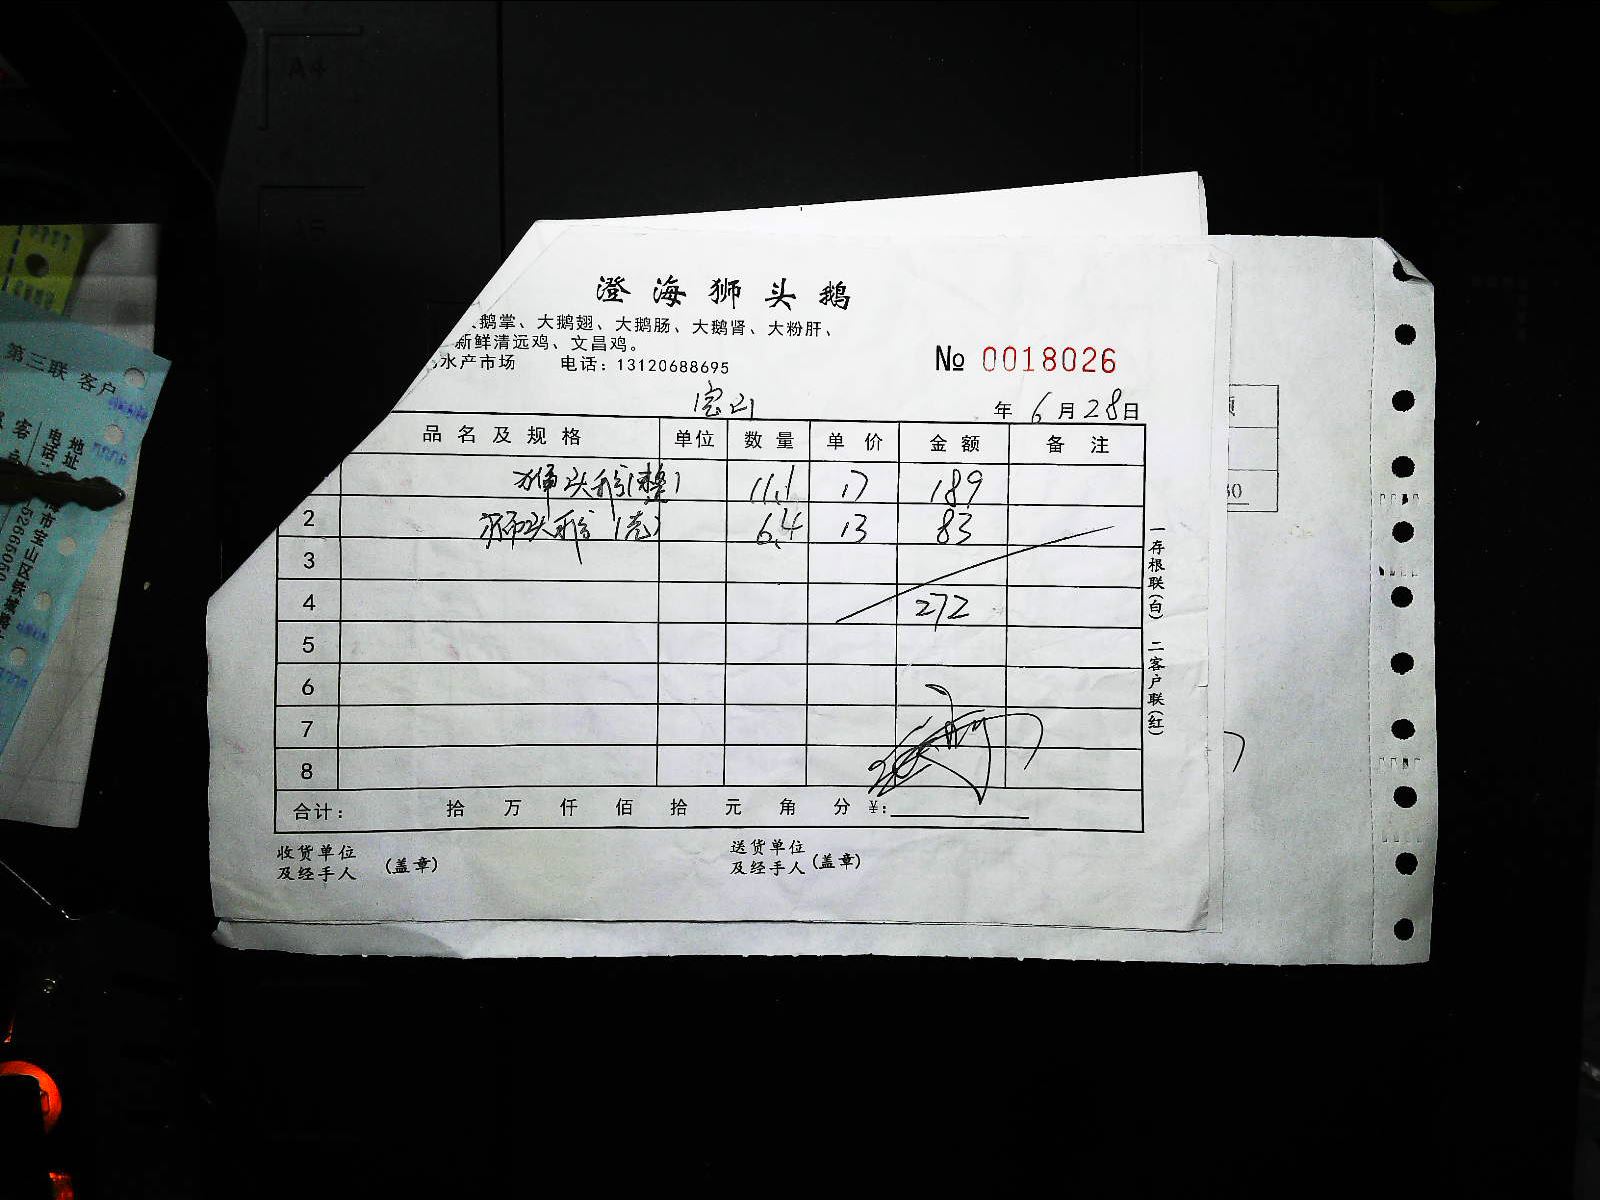 澄海狮头鹅
大鹅掌、大鹅翅、大鹅肠、大鹅肾、大粉肝、
新鲜清远鸡、文昌鸡。
水产市场 电话:13120688695
№ 0018026
宝山
年 6 月 28 日
品名及规格 单位 数量 单价 金额 备注
狮头鹅(整) 11.1 17 189
2 狮头鹅(壳) 6.4 13 83
3
4 272
5
6
7
8
合计: 拾 万 仟 佰 拾 元 角 分 ¥:
收货单位
及经手人 (盖章)
送货单位
及经手人 (盖章)
一存根联(白) 二客户联(红)
第三联 客户
地址
电话:
市宝山区铁城路
52665050